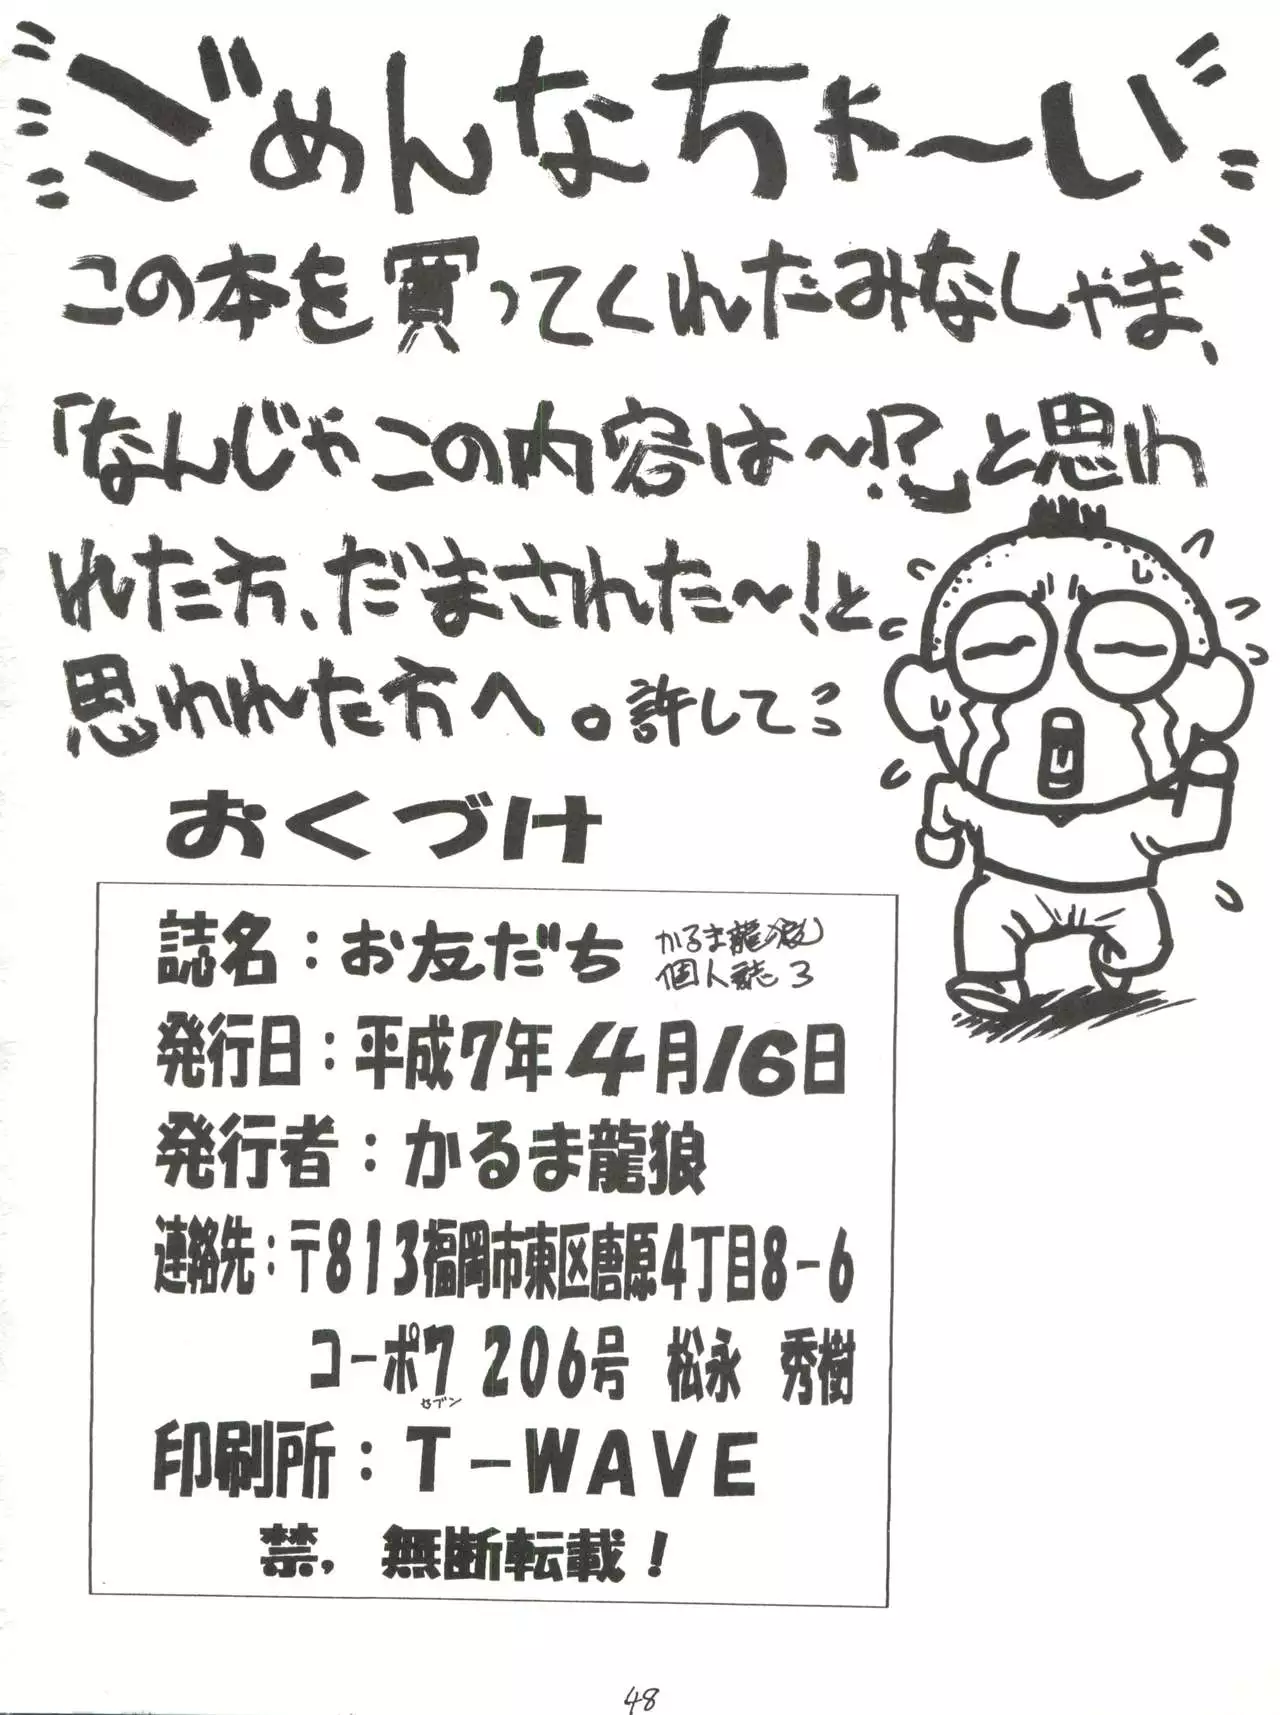 ごめんなちゃ～い
この本を買ってくれたみなしゃま、
「なんじゃこの内容は～!?」と思わ
れた方、だまされた～!と
思われた方へ。許してニ
おくづけ
誌名：お友だち かるま龍狼
個人誌3
発行日：平成7年4月16日
発行者：かるま龍狼
連絡先：〒813福岡市東区唐原4丁目8-6
コーポ7 206号 松永 秀樹
セブン
印刷所：T-WAVE
禁，無断転載！
48